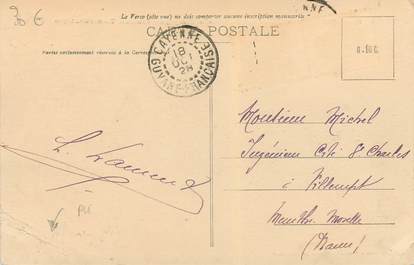 30 €
Le Verso (côté vue) ne doit comporter aucune inscription manuscrite
CARTE POSTALE
Partie exclusivement réservée à la Corres
CAYENNE
18
28
GUYANE-FRANÇAISE
Monsieur Michel
Ingénieur Cité St Charles
à Villerupt
Meurthe Moselle
(France)